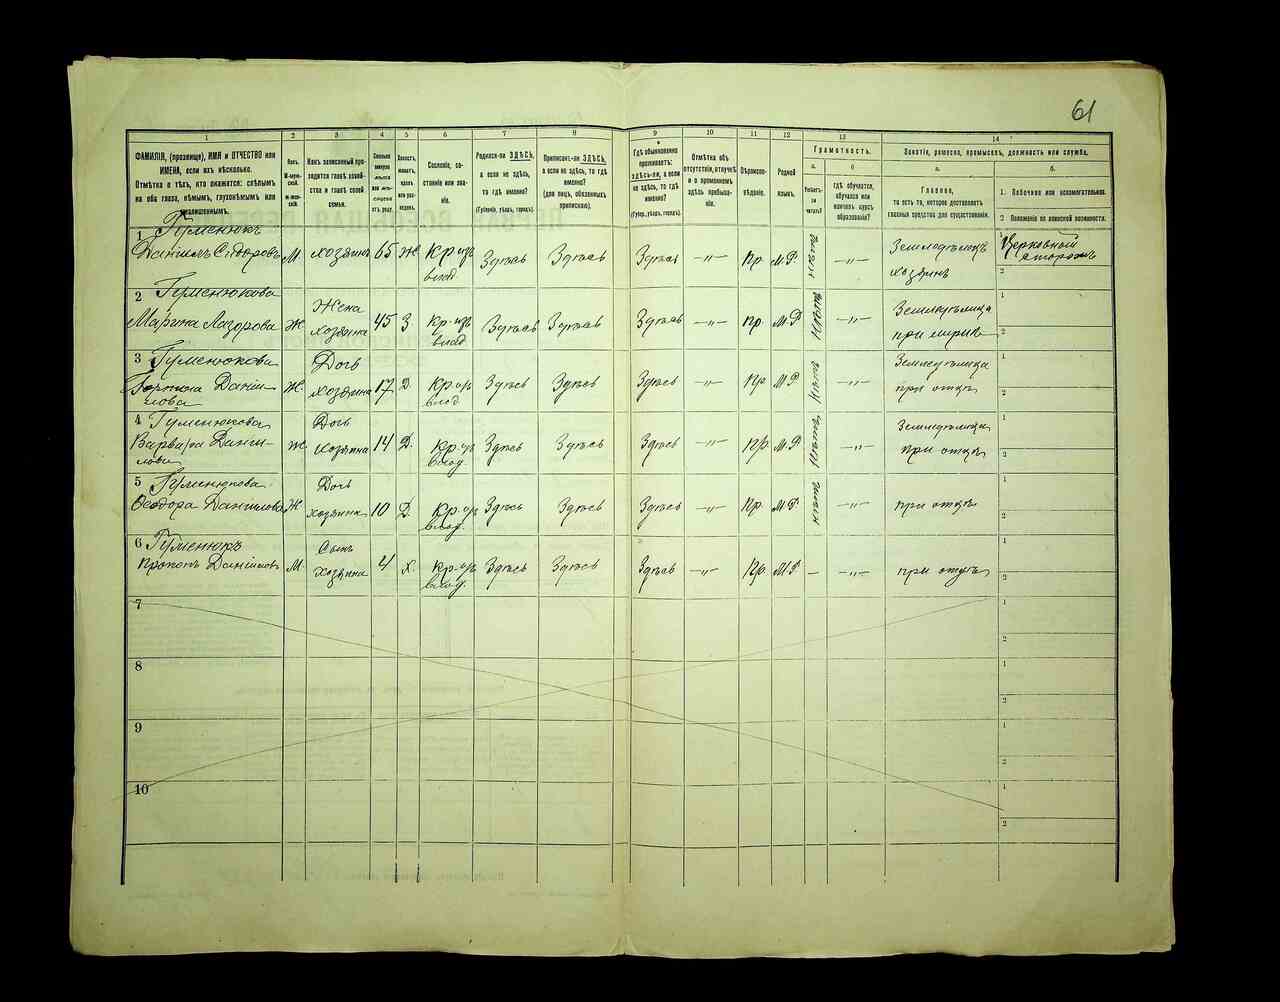 61
1 2 3 4 5 6 7 8 9 10 11 12 13 14
ФАМИЛІЯ, (прозвище), ИМЯ и ОТЧЕСТВО или
ИМЕНА, если ихъ нѣсколько.
Отмѣтка о тѣхъ, кто окажется: слѣпымъ
на оба глаза, нѣмымъ, глухонѣмымъ или
умалишеннымъ.
Полъ.
М-мужской.
Ж-женскій.
Какъ записанный приходится главѣ хозяйства и главѣ своей семьи.
Сословіе, состояніе или званіе.
Родился-ли ЗДѢСЬ,
а если не здѣсь,
то гдѣ именно?
(Губернія, уѣздъ, городъ).
Приписанъ-ли ЗДѢСЬ,
а если не здѣсь, то гдѣ
именно?
(для лицъ, обязанныхъ
припискою).
Гдѣ обыкновенно
проживаетъ:
здѣсь-ли, а если
не здѣсь, то гдѣ
именно?
(Губер., уѣздъ, городъ).
Отмѣтка объ
отсутствіи, отлучкѣ
и о временномъ
здѣсь пребываніи.
Вѣроисповѣданіе.
Родной
языкъ.
Грамотность.
а.
Умѣетъ-ли
читать?
б
гдѣ обучается,
обучался или
кончилъ курсъ
образованія?
Занятіе, ремесло, промыселъ, должность или служба.
а.
Главное,
то есть то, которое доставляетъ
главныя средства для существованія.
б.
1. Побочное или вспомогательное.
2 Положеніе по воинской повинности.
1 Гуменюкъ
Даніилъ Сидоровъ М. хозяинъ 65 Ж Кр. изъ влад Здѣсь Здѣсь Здѣсь —„— Пр. М.Р. —„— Земледѣлецъ хозяинъ Церковный сторожъ
2 Гуменюкова
Марина Лазорова Ж Жена хозяина 45 З. Кр. изъ влад Здѣсь Здѣсь Здѣсь —„— Пр. М.Р —„— Земледѣлица
3 Гуменюкова
Даніилова Ж. Дочь хозяина 17 Д. Кр изъ влад Здѣсь Здѣсь Здѣсь —„— Пр М Р. —„— Земледѣлица при отцѣ
4 Гуменюкова
Варвара Даніилова Ж Дочь хозяина 14 Д. Кр. изъ влад. Здѣсь Здѣсь Здѣсь —„— Пр М.Р. —„— Земледѣлица при отцѣ
5 Гуменюкова
Ѳеодора Даніилова Ж Дочь хозяина 10 Д. Кр. изъ влад. Здѣсь Здѣсь Здѣсь —„— Пр. М.Р. —„— при отцѣ
6 Гуменюкъ
Прокопъ Даніиловъ М. Сынъ хозяина 4 Х. Кр. изъ влад. Здѣсь Здѣсь Здѣсь —„— Пр. М.Р — —„— при отцѣ
7
8
9
10